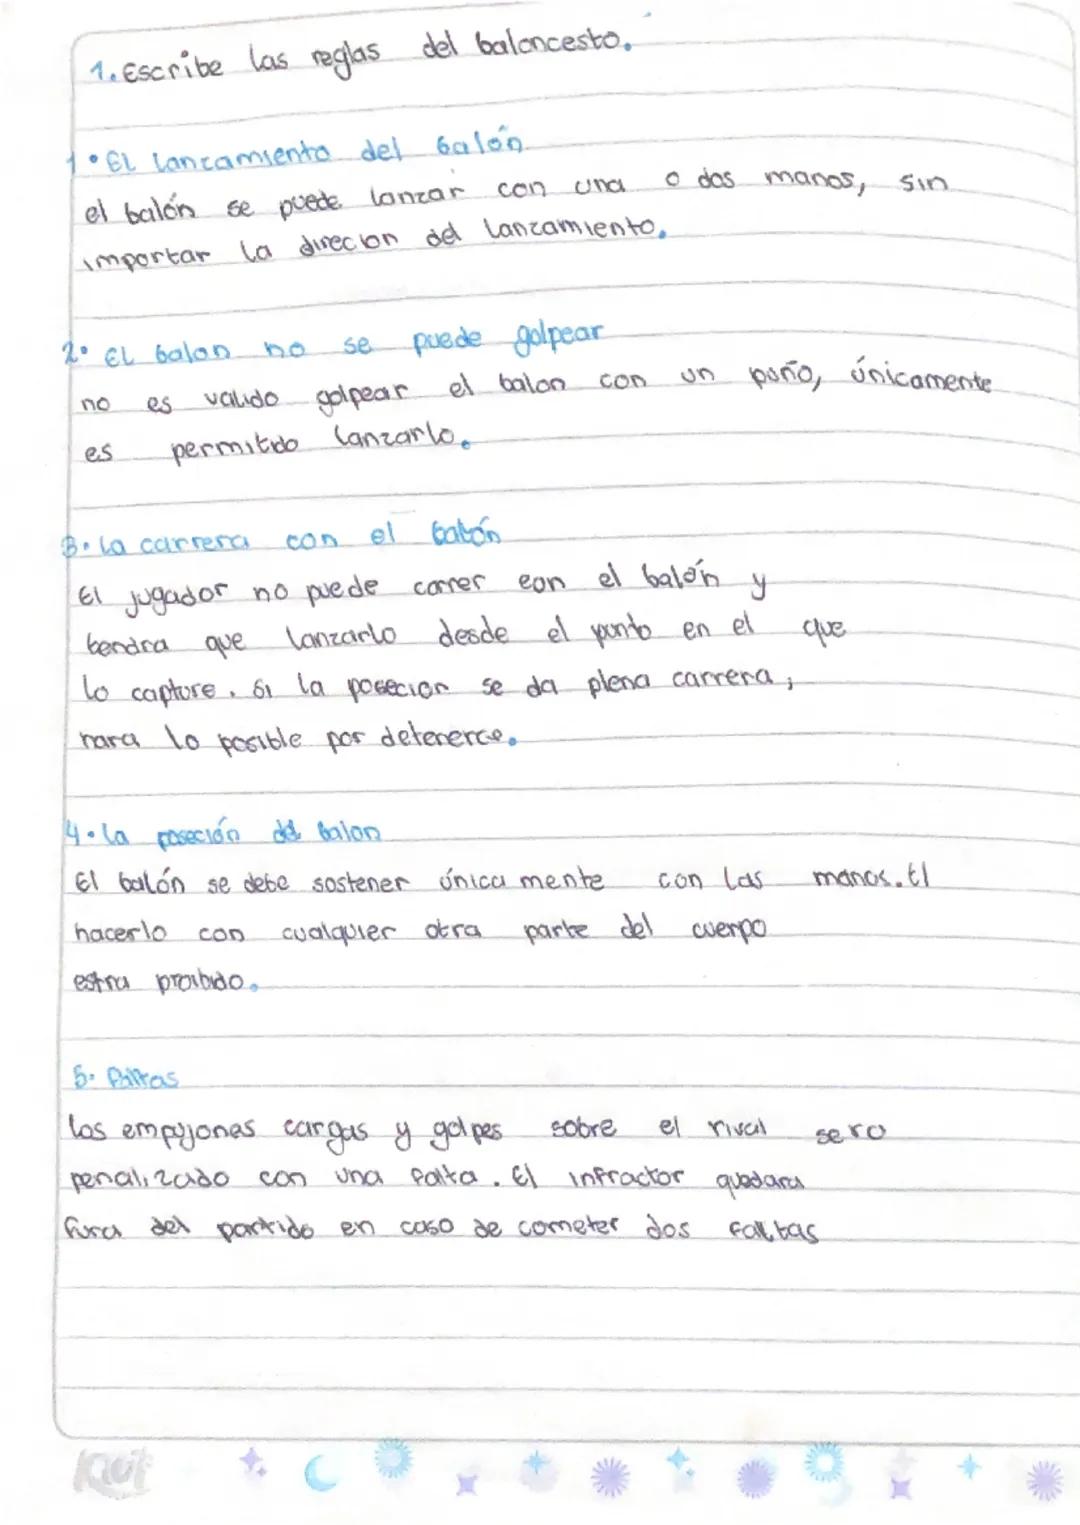 1. Escribe las reglas del baloncesto.
1. El lanzamiento del balón
el balón se puede lanzar con una o dos manos, sin
importar la direcion del lanzamiento.
2. El balon no se puede golpear
no es valido golpear el balon con un poño, únicamente
es permitido lanzarlo.
3. La carrera con el balón
El jugador no puede correr con el balón y
tendra que lanzarlo desde el punto en el que
lo capture. Si la posecion se da plena carrera,
hara lo posible por detenerce.
4. La poseción del balon
El balón se debe sostener única mente con las manos. El
hacerlo con cualquier otra parte del cuerpo
estra proibido.
5. Faltas
los empujones cargas y golpes sobre el rival sera
penalizado con una falta. El infractor quedara
fura del partido en caso de cometer dos faltas